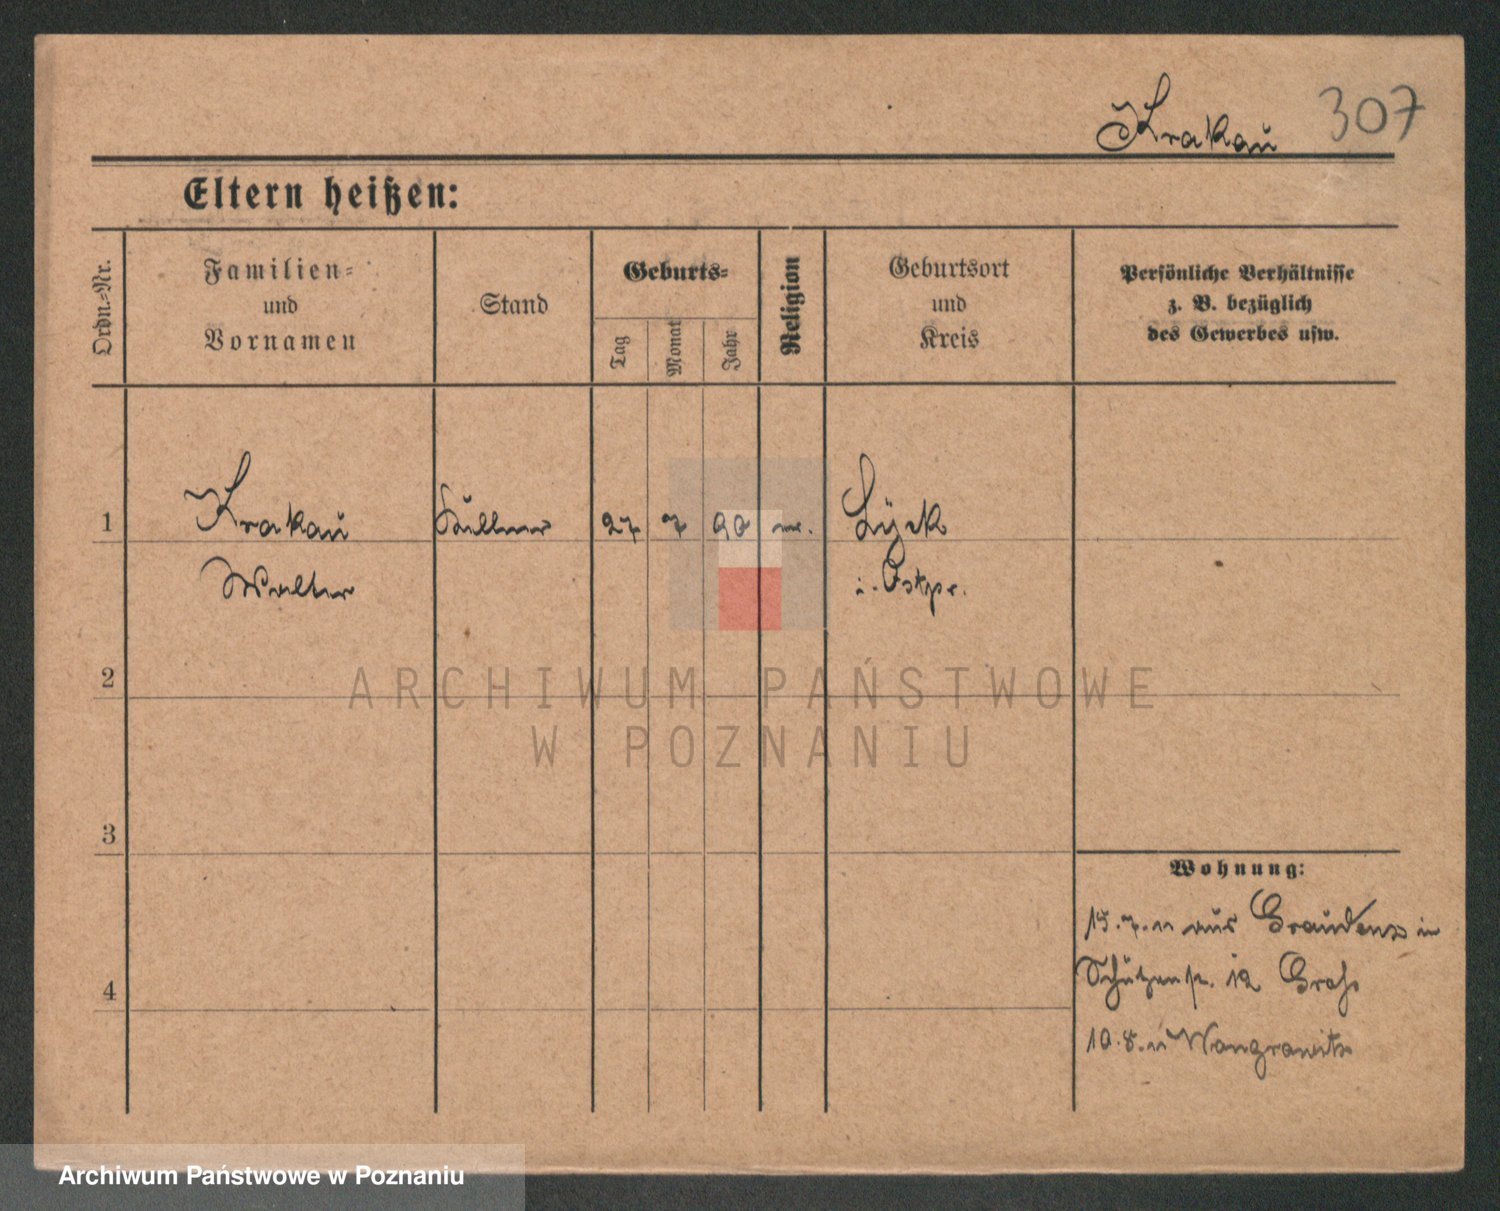 Krakau 307
Eltern heißen:
Ordn.-Nr.
Familien-
und
Vornamen
Stand
Geburts-
Tag
Monat
Jahr
Religion
Geburtsort
und
Kreis
Persönliche Verhältnisse
z. B. bezüglich
des Gewerbes usw.
1 Krakau Kellner 27 7 90 Lyck
Walter i. Ostpr.
2
ARCHIWUM PAŃSTWOWE
W POZNANIU
3
Wohnung:
15.7.11 aus Graudenz in
Schützenstr. 12 Groß
4
10.8.11 Wongrowitz
Archiwum Państwowe w Poznaniu